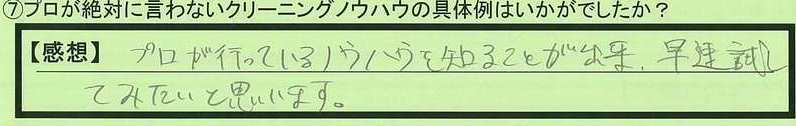 ⑦プロが絶対に言わないクリーニングノウハウの具体例はいかがでしたか？
【感想】 プロが行っているノウハウを知ることが出来、早速試し
てみたいと思います。